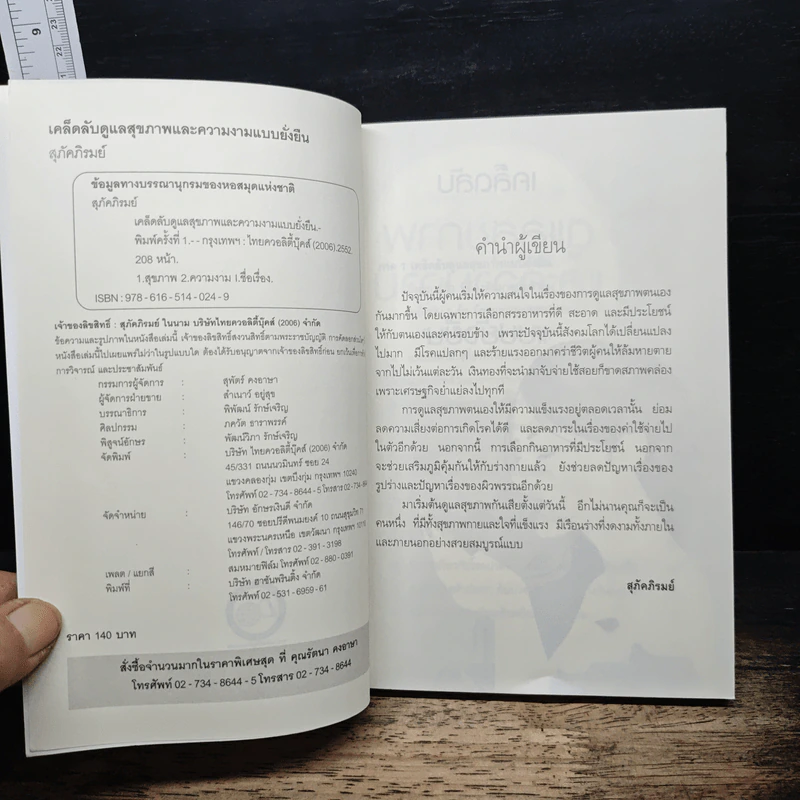 เคล็ดลับดูแลสุขภาพและความงามแบบยั่งยืน
สุภัคภิรมย์
ข้อมูลทางบรรณานุกรมของหอสมุดแห่งชาติ
สุภัคภิรมย์
เคล็ดลับดูแลสุขภาพและความงามแบบยั่งยืน.-
พิมพ์ครั้งที่ 1.-- กรุงเทพฯ : ไทยควอลิตี้บุ๊คส์ (2006).2552.
208 หน้า.
1.สุขภาพ 2.ความงาม I.ชื่อเรื่อง.
ISBN : 978 - 616 - 514 - 024 - 9
เจ้าของลิขสิทธิ์ : สุภัคภิรมย์ ในนาม บริษัทไทยควอลิตี้บุ๊คส์ (2006) จำกัด
ข้อความและรูปภาพในหนังสือเล่มนี้ เจ้าของลิขสิทธิ์สงวนสิทธิ์ตามพระราชบัญญัติ การคัดลอกส่วนใด
หนังสือเล่มนี้ไปเผยแพร่ไม่ว่าในรูปแบบใด ต้องได้รับอนุญาตจากเจ้าของลิขสิทธิ์ก่อน ยกเว้นเพื่อการ
การวิจารณ์ และประชาสัมพันธ์
กรรมการผู้จัดการ : สุพัตร์ คงอาษา
ผู้จัดการฝ่ายขาย : สำเนาว์ อยู่สุข
บรรณาธิการ : พิพัฒน์ รักษ์เจริญ
ศิลปกรรม : ภควัต ธาราพรรค์
พิสูจน์อักษร : พัฒน์วิภา รักษ์เจริญ
จัดพิมพ์ : บริษัท ไทยควอลิตี้บุ๊คส์ (2006) จำกัด
45/331 ถนนนวมินทร์ ซอย 24
แขวงคลองกุ่ม เขตบึงกุ่ม กรุงเทพฯ 10240
โทรศัพท์ 02 - 734 - 8644 - 5 โทรสาร 02 - 734
จัดจำหน่าย : บริษัท อักษรเงินดี จำกัด
146/70 ซอยปรีดีพนมยงค์ 10 ถนนสุขุมวิท 71
แขวงพระนครเหนือ เขตวัฒนา กรุงเทพฯ
โทรศัพท์ / โทรสาร 02 - 391 - 3198
สมหมายฟิล์ม โทรศัพท์ 02 - 880 - 0391
เพลต / แยกสี :
พิมพ์ที่ : บริษัท ฮาซันพรินติ้ง จำกัด
โทรศัพท์ 02 - 531 - 6959 - 61
ราคา 140 บาท
สั่งซื้อจำนวนมากในราคาพิเศษสุด ที่ คุณรัตนา คงอาษา
โทรศัพท์ 02 - 734 - 8644 - 5 โทรสาร 02 - 734 - 8644
คำนำผู้เขียน
ปัจจุบันนี้ผู้คนเริ่มให้ความสนใจในเรื่องของการดูแลสุขภาพตนเอง
กันมากขึ้น โดยเฉพาะการเลือกสรรอาหารที่ดี สะอาด และมีประโยชน์
ให้กับตนเองและคนรอบข้าง เพราะปัจจุบันนี้สังคมโลกได้เปลี่ยนแปลง
ไปมาก มีโรคแปลกๆ และร้ายแรงออกมาคร่าชีวิตผู้คนให้ล้มหายตาย
จากไปไม่เว้นแต่ละวัน เงินทองที่จะนำมาจับจ่ายใช้สอยก็ขาดสภาพคล่อง
เพราะเศรษฐกิจย่ำแย่ลงไปทุกที
การดูแลสุขภาพตนเองให้มีความแข็งแรงอยู่ตลอดเวลานั้น ย่อม
ลดความเสี่ยงต่อการเกิดโรคได้ดี และลดภาระในเรื่องของค่าใช้จ่ายไป
ในตัวอีกด้วย นอกจากนี้ การเลือกกินอาหารที่มีประโยชน์ นอกจาก
จะช่วยเสริมภูมิคุ้มกันให้กับร่างกายแล้ว ยังช่วยลดปัญหาเรื่องของ
รูปร่างและปัญหาเรื่องของผิวพรรณอีกด้วย
มาเริ่มต้นดูแลสุขภาพกันเสียตั้งแต่วันนี้ อีกไม่นานคุณก็จะเป็น
คนหนึ่ง ที่มีทั้งสุขภาพกายและใจที่แข็งแรง มีเรือนร่างที่งดงามทั้งภายใน
และภายนอกอย่างสวยสมบูรณ์แบบ
สุภัคภิรมย์